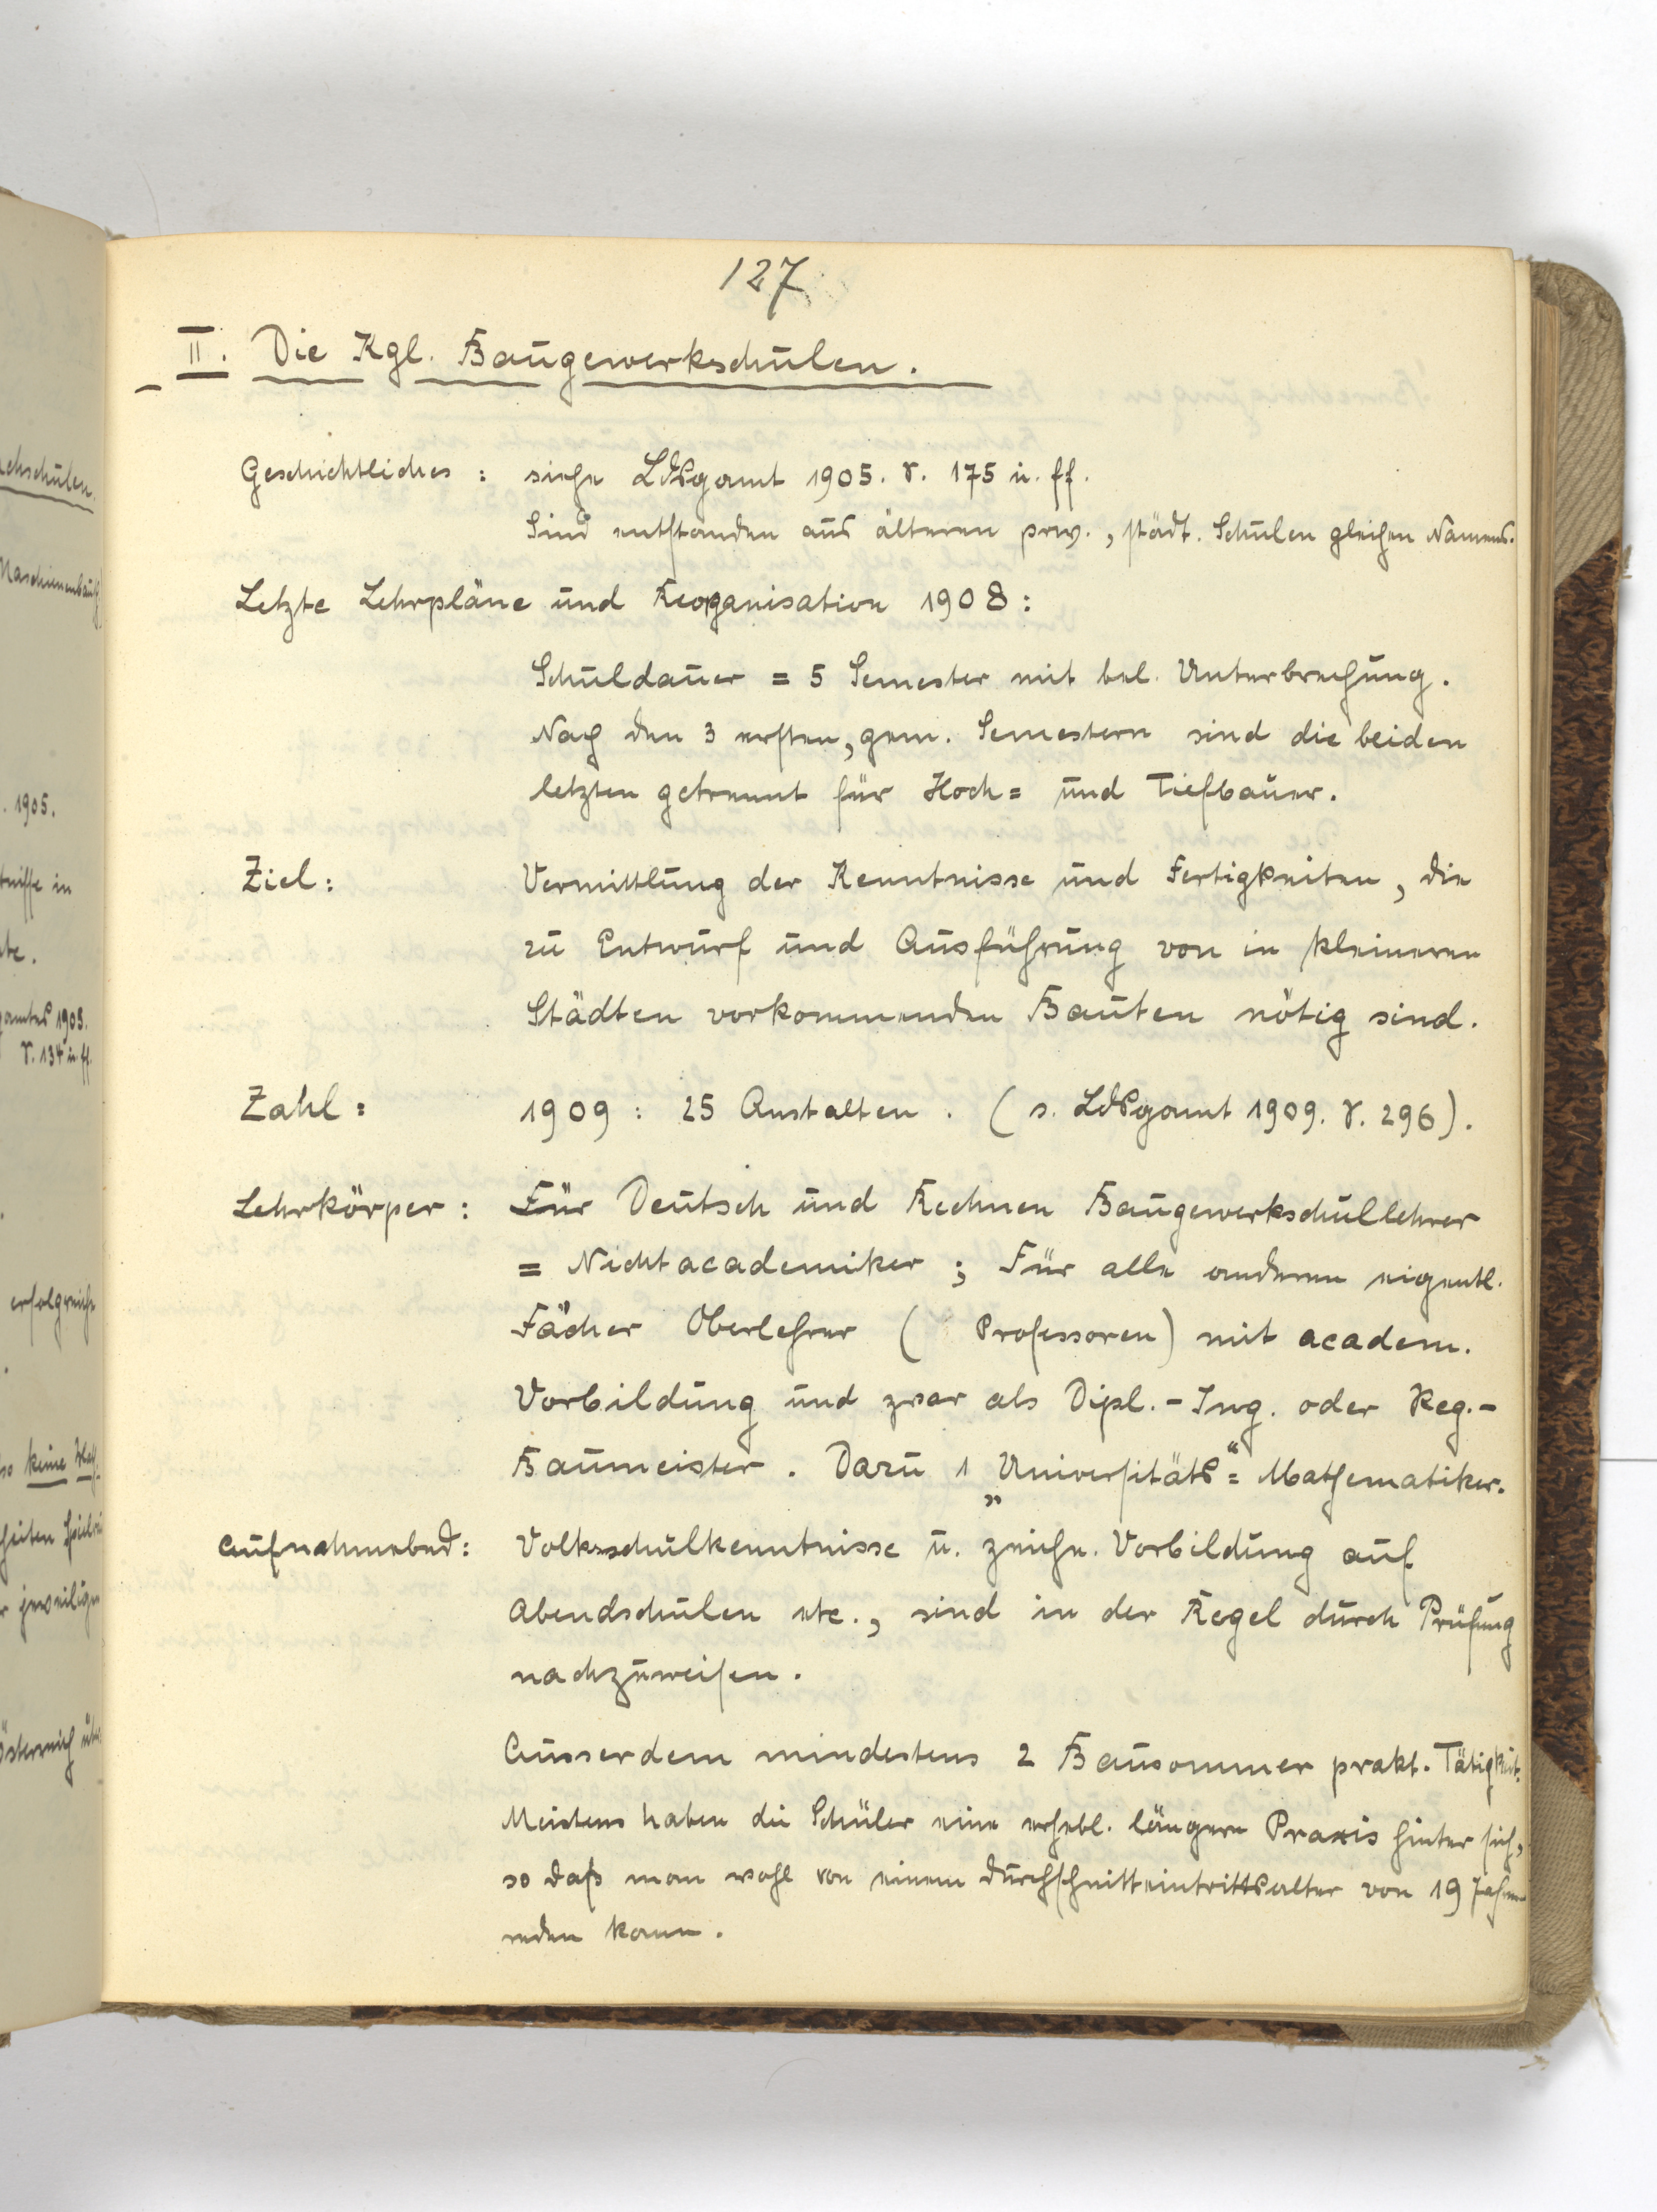 127
II. Die Kgl. Baugewerkschulen.
Geschichtliches : siehe LdsPgamt 1905. S. 175 u. ff.
Sind entstanden aus älteren priv., städt. Schulen gleichen Namens.
Letzte Lehrpläne und Reorganisation 1908 :
Schuldauer = 5 Semester mit bel. Unterbrechung.
Nach den 3 ersten, gem. Semestern sind die beiden
letzten getrennt für Hoch= und Tiefbauer.
Ziel : Vermittlung der Kenntnisse und Fertigkeiten, die
zu Entwurf und Ausführung von in kleineren
Städten vorkommenden Bauten nötig sind.
Zahl : 1909 : 25 Anstalten. ( s. 1909. S. 296).
Lehrkörper : Für Deutsch und Rechnen Baugewerkschullehrer
= Nichtacademiker ; Für alle anderen eigentl.
Fächer Oberlehrer ( Professoren) mit academ.
Vorbildung und zwar als Dipl.-Ing. oder Reg.-
Baumeister. Dazu 1 „Universitäts“= Mathematiker.
Aufnahmebed: Volksschulkenntnisse u. zeichn. Vorbildung auf
Abendschulen etc., sind in der Regel durch Prüfung
nachzuweisen.
Ausserdem mindestens 2 Bausommer prakt. Tätigkeit.
Meistens haben die Schüler eine erhebl. längere Praxis hinter sich,
so daß man wohl von einem Durchschnitteintrittsalter von 19 Jahren
reden kann.
chschulen.
Maschinenbau
. 1905.
tnisse in
te.
amtes 1909.
S. 134 u. ff.
erfolgreiche
so keine
heiten
r jeweiligen
Österreich